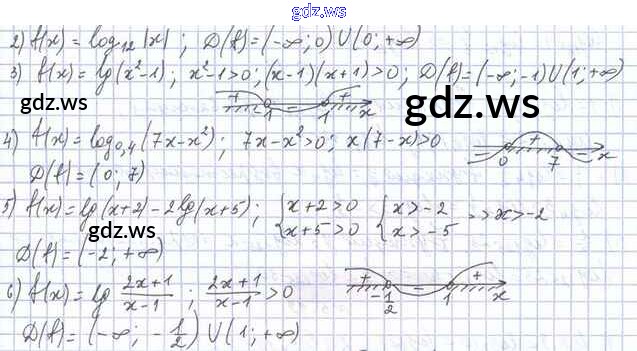 gdz.ws
2) f(x) = log₁₂|x| ; D(f) = (-∞; 0) U (0; +∞)
3) f(x) = lg(x²-1) ; x²-1>0; (x-1)(x+1)>0; D(f) = (-∞; -1) U (1; +∞)
+ - + -1 1 x
gdz.ws
gdz.ws
4) f(x) = log₀,₄(7x-x²); 7x-x²>0; x(7-x)>0
- + - 0 7 x
D(f) = (0; 7)
5) f(x) = lg(x+2) - 2lg(x+5); {x+2>0 {x>-2 => x>-2
{x+5>0 {x>-5
gdz.ws
D(f) = (-2; +∞)
6) f(x) = lg (2x+1)/(x-1) ; (2x+1)/(x-1) > 0
+ - + -1/2 1 x
D(f) = (-∞; -1/2) U (1; +∞)